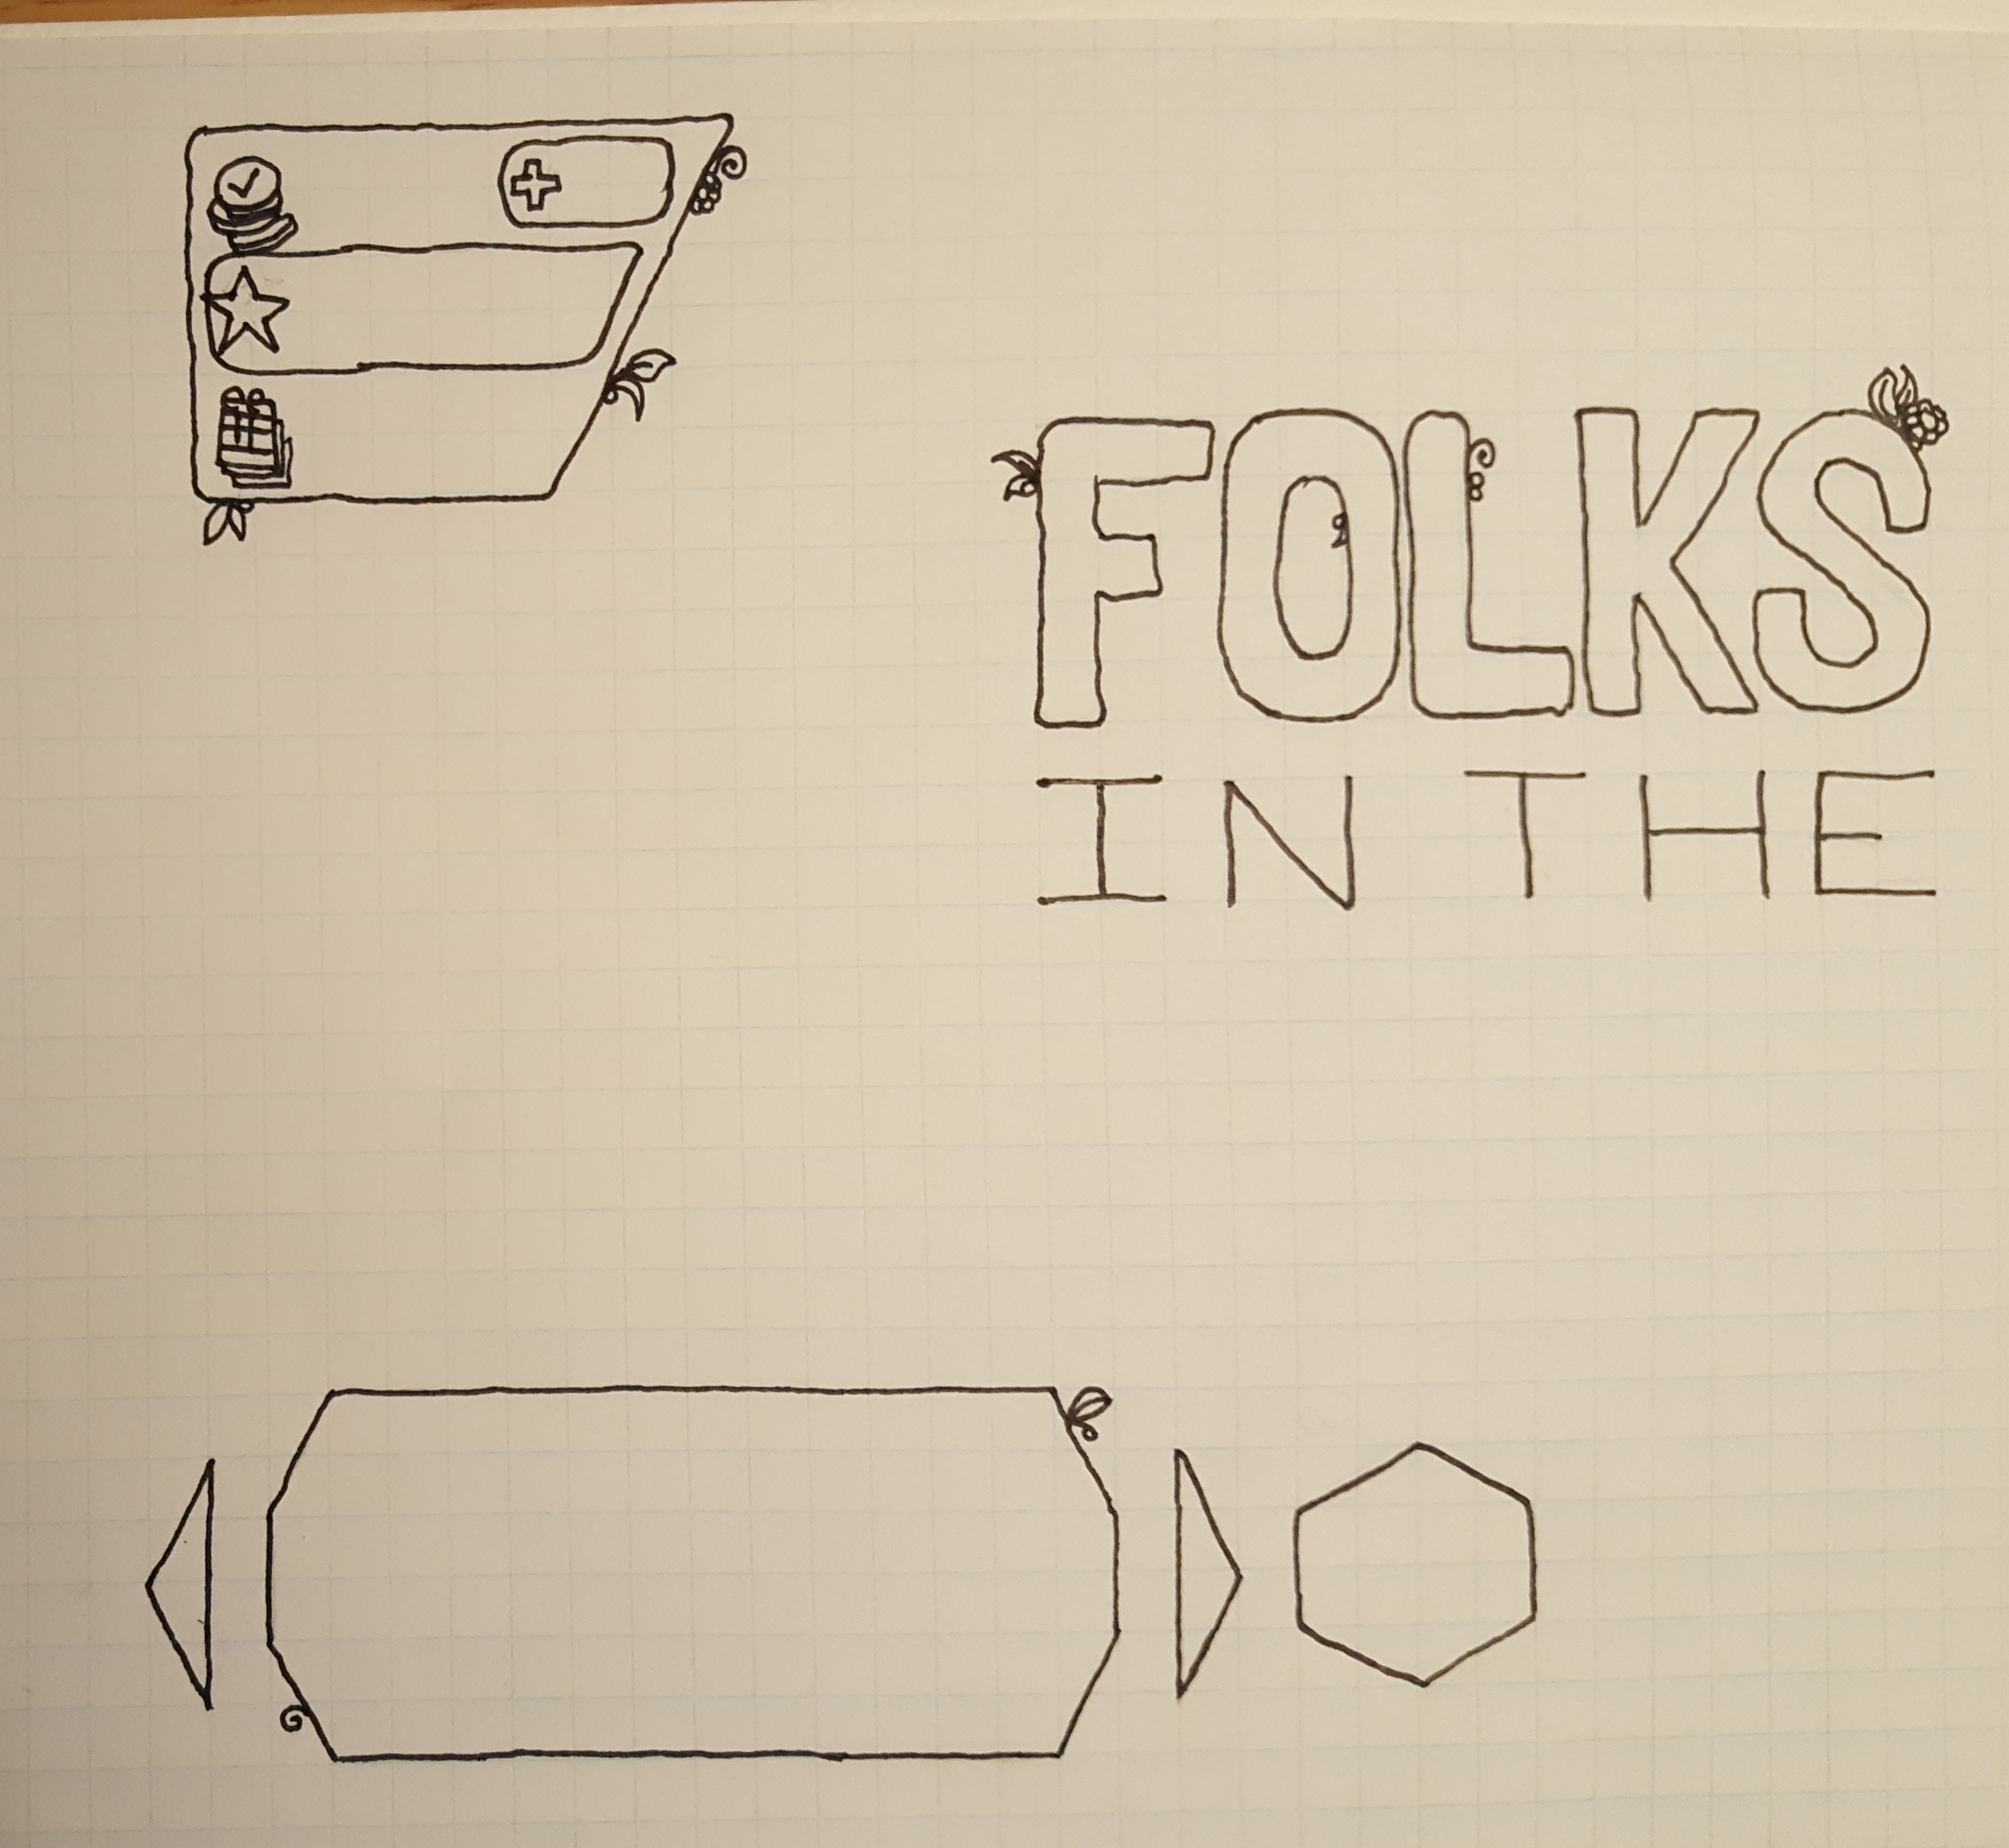 FOLKS
IN THE